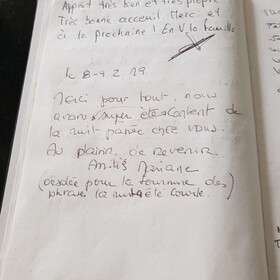 Appart très bon et très propre
Très bonne acceuil. Merci et
à la prochaine ! En V, la famille
le 8-4 2 19
Merci pour tout, nous
avons super été content de
la nuit passée chez vous.
Au plaisir de revenir.
(désolée pour la tournure des
phrase la nuit a été courte.)